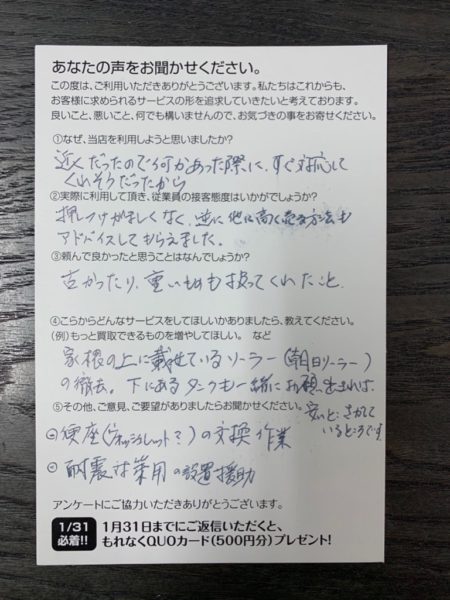 あなたの声をお聞かせください。
この度は、ご利用いただきありがとうございます。私たちはこれからも、
お客様に求められるサービスの形を追求していきたいと考えております。
良いこと、悪いこと、何でも構いませんので、お気づきの事をお寄せください。
①なぜ、当店を利用しようと思いましたか?
近くだったので何かあった際に、すぐ対応して
くれそうだったから
②実際に利用して頂き、従業員の接客態度はいかがでしょうか?
押しつけがましくなく、逆に他に高く売る方法も
アドバイスしてもらえました。
③頼んで良かったと思うことはなんでしょうか?
古かったり、重いものも扱ってくれたこと、
④こらからどんなサービスをしてほしいかありましたら、教えてください。
(例)もっと買取できるものを増やしてほしい。 など
家根の上に載せているソーラー(朝日ソーラー)
の撤去。下にあるタンクも一緒にお願いできれば。
⑤その他、ご意見、ご要望がありましたらお聞かせください。
安いところさがして
いるところです
便座(ウォッシュレット?)の交換作業
耐震 用の設置援助
アンケートにご協力いただきありがとうございます。
1/31
必着!!
1月31日までにご返信いただくと、
もれなくQUOカード(500円分)プレゼント!